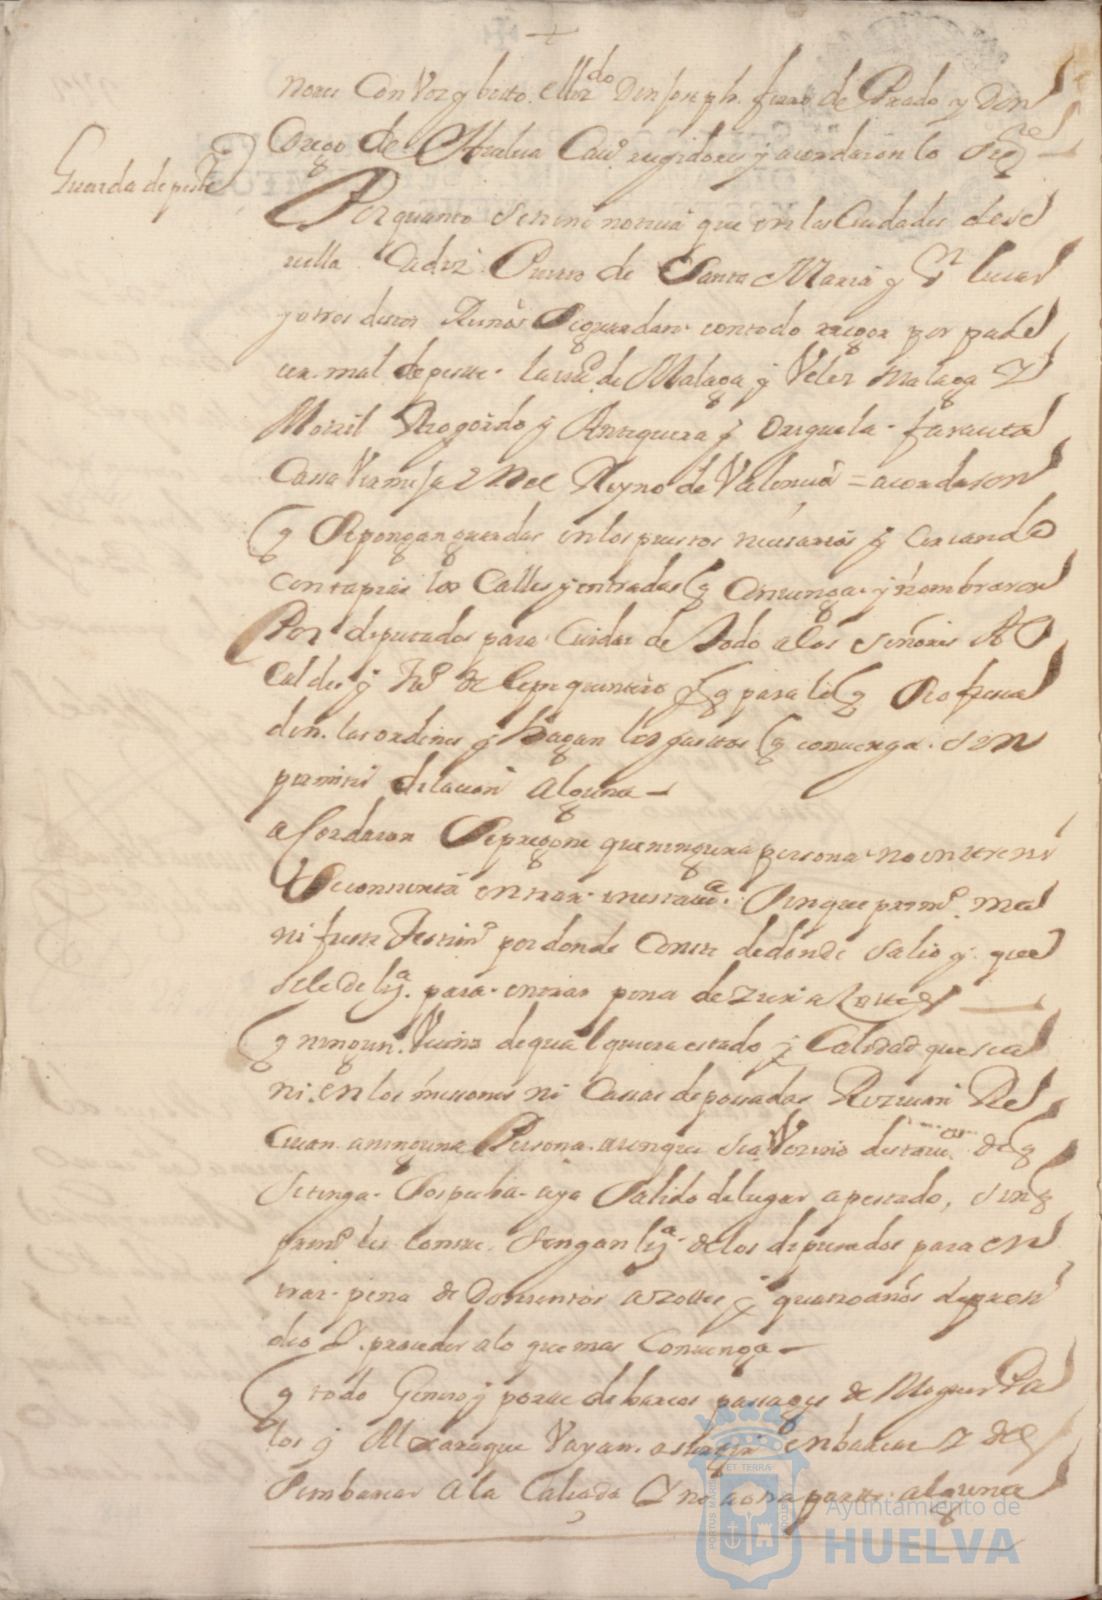 nores Con Voz y boto. el lizdo Don Joseph. fraro de Prado y Don
Diego de Cauo. regidores y acordaron lo sigte
Guarda de peste
Por quanto se tiene noticia que en las Ciudades de se
uilla Cadiz Puerto de Santa Maria y Sn lucar
y otros destos Reinos Se guardan con todo rigor por pade
cer mal de peste la ciud de Malaga y Velez malaga Y
Motril y Antequera y Origuela
Casa Vermeja en el Reyno de Valencia = acordaron
q Se pongan guardas en los puestos necesarios y cercando
con tapias las Calles y entradas q Conuenga y nombraron
Por deputados para Cuidar de todo a los Señores Al
caldes y de Lepe quintero para
den las ordenes y hagan los gastos q conuenga sin
permitir dilacion alguna
acordaron Se pregone que ninguna persona no entre ni
Se consienta entrar en esta uia. Sin que primo ma
nifieste testimo por donde Conste de donde Salio y que
se le de lisa para entrar pena de
q ningun Vecino de qualquiera estado y Calidad que sea
ni en los messones ni Casas de possadas Reziuan Re
ciuan a ninguna Persona aunque sea Vezino desta de q
se tenga Sospecha aya Salido de lugar apestado, sin q
primo les Conste tengan lisa de los deputados para en
trar pena de Doscientos azotes y quatro años de presi
dio Y proceder a lo que mas Conuenga
q todo Genero y porte de barcos passages de Moguer Pa
los y Alxaraque Vayan a surgir enbarcar Y de
Sembarcar a la Calzada Y no a otra parte alguna
PORTUS MARIS ET TERRAE CUSTODIA
Ayuntamiento de
HUELVA